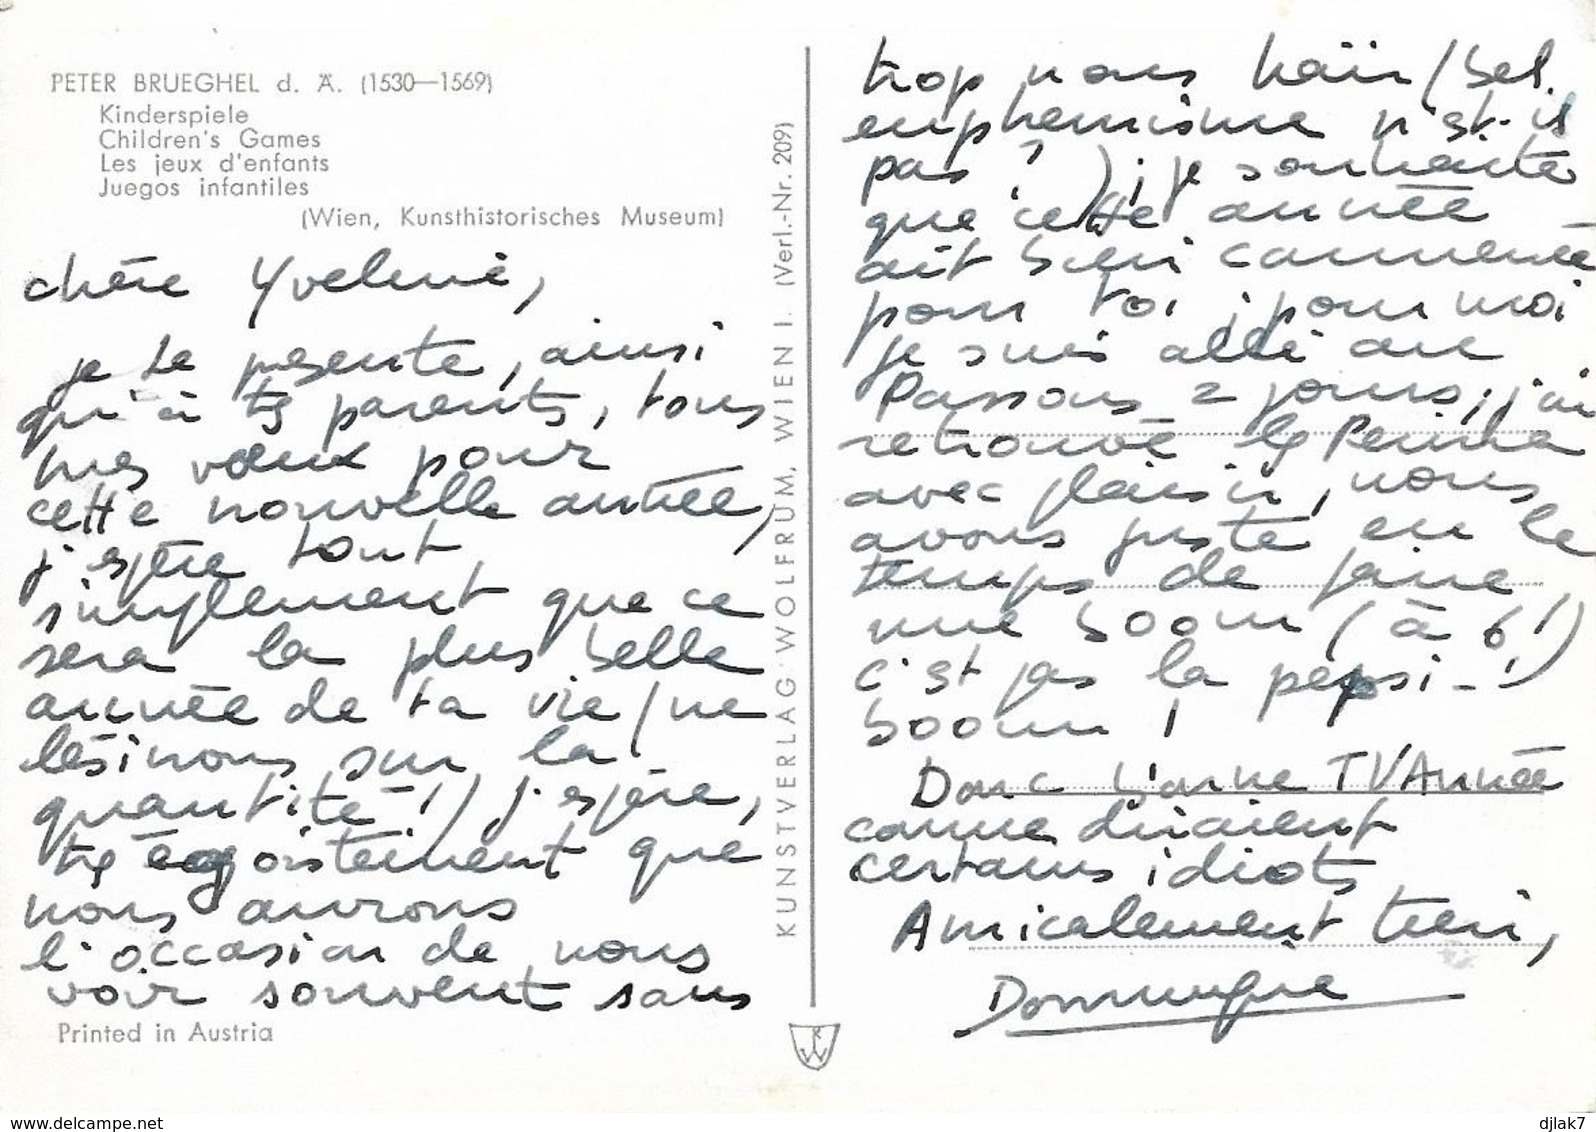 PETER BRUEGHEL d. Ä. (1530—1569)
Kinderspiele
Children's Games
Les jeux d'enfants
Juegos infantiles
(Wien, Kunsthistorisches Museum)
chère Yveline,
je te présente, ainsi
qu'à tes parents, tous
mes vœux pour
cette nouvelle année,
j'espère tout
simplement que ce
sera la plus belle
année de ta vie (ne
lésinons sur la
quantité !) j'espère,
très égoïstement que
nous aurons
l'occasion de nous
voir souvent sans
Printed in Austria
KUNSTVERLAG WOLFRUM, WIEN I. (Verl.-Nr. 209)
trop nous haïr (bel
euphémisme n'est-il
pas ?) ; je souhaite
que cette année
ait bien commencé
pour toi ; pour moi
je suis allé au
Passous 2 jours, j'ai
retrouvé
avec plaisir, nous
avons juste eu le
temps de faire
une boom (à 6 !)
c'est pas la pepsi - !
boom !
Donc bonne TV Année
comme diraient
certains idiots
Amicalement tien,
Dominique
RWW
www.delcampe.net
djlak7